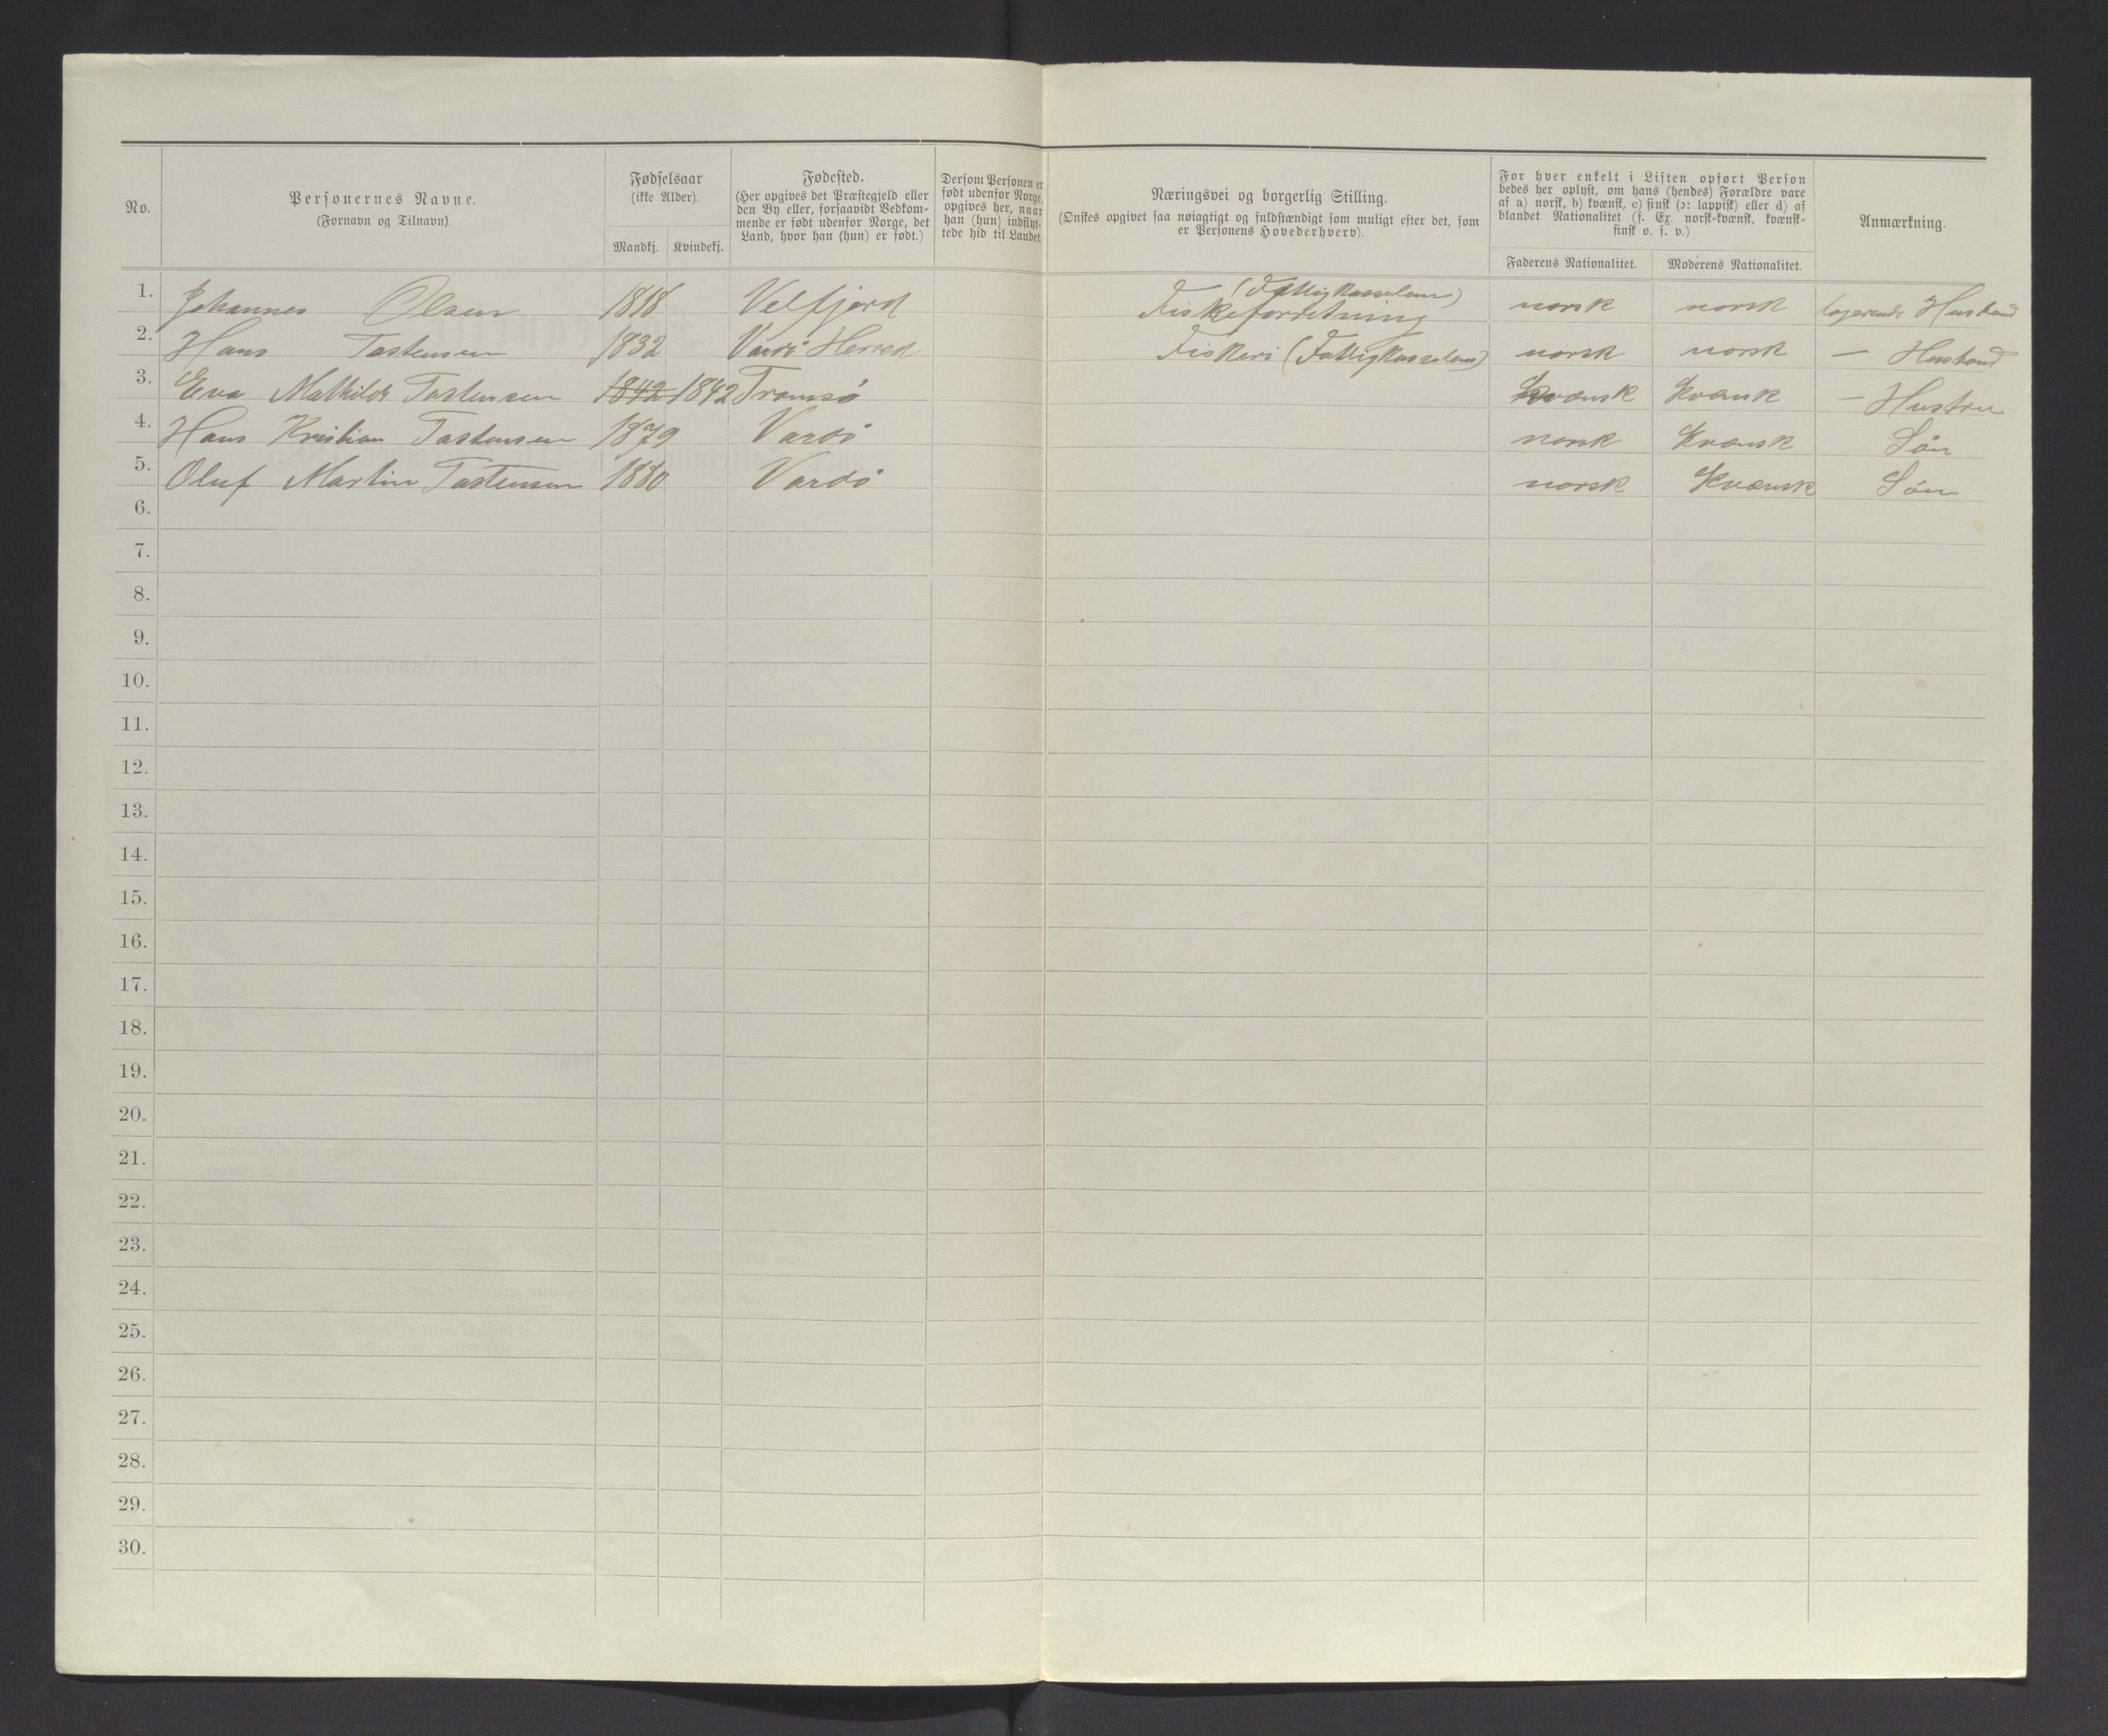 No.
Personernes Navne.
(Fornavn og Tilnavn).
Fødselsaar
(ikke Alder).
Mandkj. Kvindekj.
Fødested.
(Her opgives det Præstegjeld eller
den By eller, forsaavidt Vedkom-
mende er født udenfor Norge, det
Land, hvor han (hun) er født.)
Dersom Personen er
født udenfor Norge,
opgives her, naar
han (hun) indflyt-
tede hid til Landet.
Næringsvei og borgerlig Stilling.
(Ønskes opgivet saa nøiagtigt og fuldstændigt som muligt efter det, som
er Personens Hovederhverv).
For hver enkelt i Listen opført Person
bedes her oplyst, om hans (hendes) Forældre vare
af a) norsk, b) kvænsk, c) finsk (ɔ: lappisk) eller d) af
blandet Nationalitet (f. Ex. norsk-kvænsk, kvænsk-
finsk o. s. v.)
Faderens Nationalitet. Moderens Nationalitet.
Anmærkning.
1. Johannes Olsen 1818 Velfjord (Fattigkasselem) Fiskeforretning norsk norsk logerende Husbond
2. Hans Tastensen 1832 Vardö Herred Fiskeri (Fattigkasselem) norsk norsk — Husbond
3. Eva Mathilde Tastensen 1842 1842 Tromsö Kvænsk Kvænsk — Hustru
4. Hans Kristian Tastensen 1879 Vardö norsk Kvænsk Sön
5. Oluf Martin Tastensen 1880 Vardö norsk Kvænsk Sön
6.
7.
8.
9.
10.
11.
12.
13.
14.
15.
16.
17.
18.
19.
20.
21.
22.
23.
24.
25.
26.
27.
28.
29.
30.